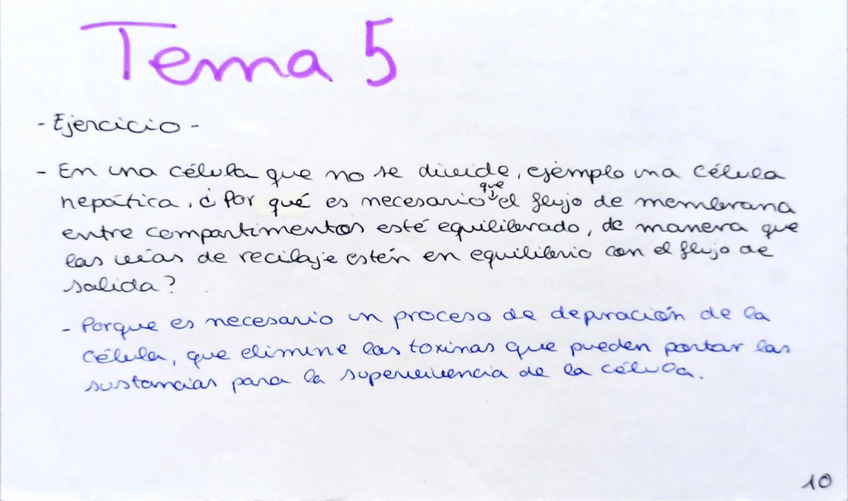 Tema 5
- Ejercicio -
- En una célula que no se divide, ejemplo una célula
hepática, ¿Por qué es necesario que el flujo de membrana
entre compartimentos esté equilibrado, de manera que
las vías de reciclaje estén en equilibrio con el flujo de
salida?
- Porque es necesario un proceso de depuración de la
célula, que elimine las toxinas que pueden portar las
sustancias para la supervivencia de la célula.
10